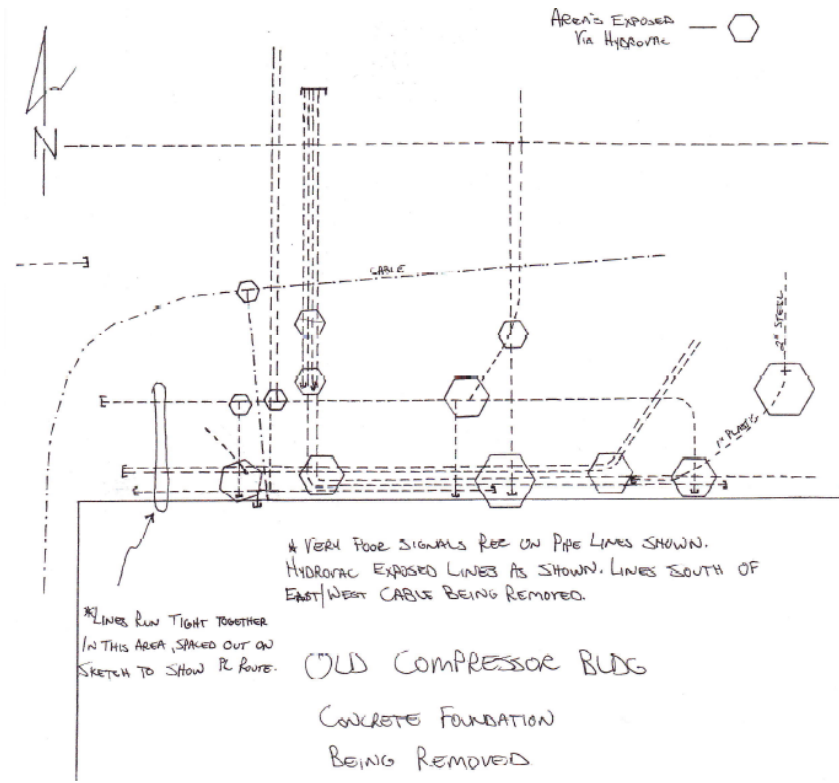 AREA'S EXPOSED
VIA HYDROVAC
N
CABLE
2" STEEL
1" PLASTIC
* VERY POOR SIGNALS REC ON PIPE LINES SHOWN.
HYDROVAC EXPOSED LINES AS SHOWN. LINES SOUTH OF
EAST/WEST CABLE BEING REMOVED.
*LINES RUN TIGHT TOGETHER
IN THIS AREA, SPACED OUT ON
SKETCH TO SHOW PL ROUTE.
OLD COMPRESSOR BLDG
CONCRETE FOUNDATION
BEING REMOVED